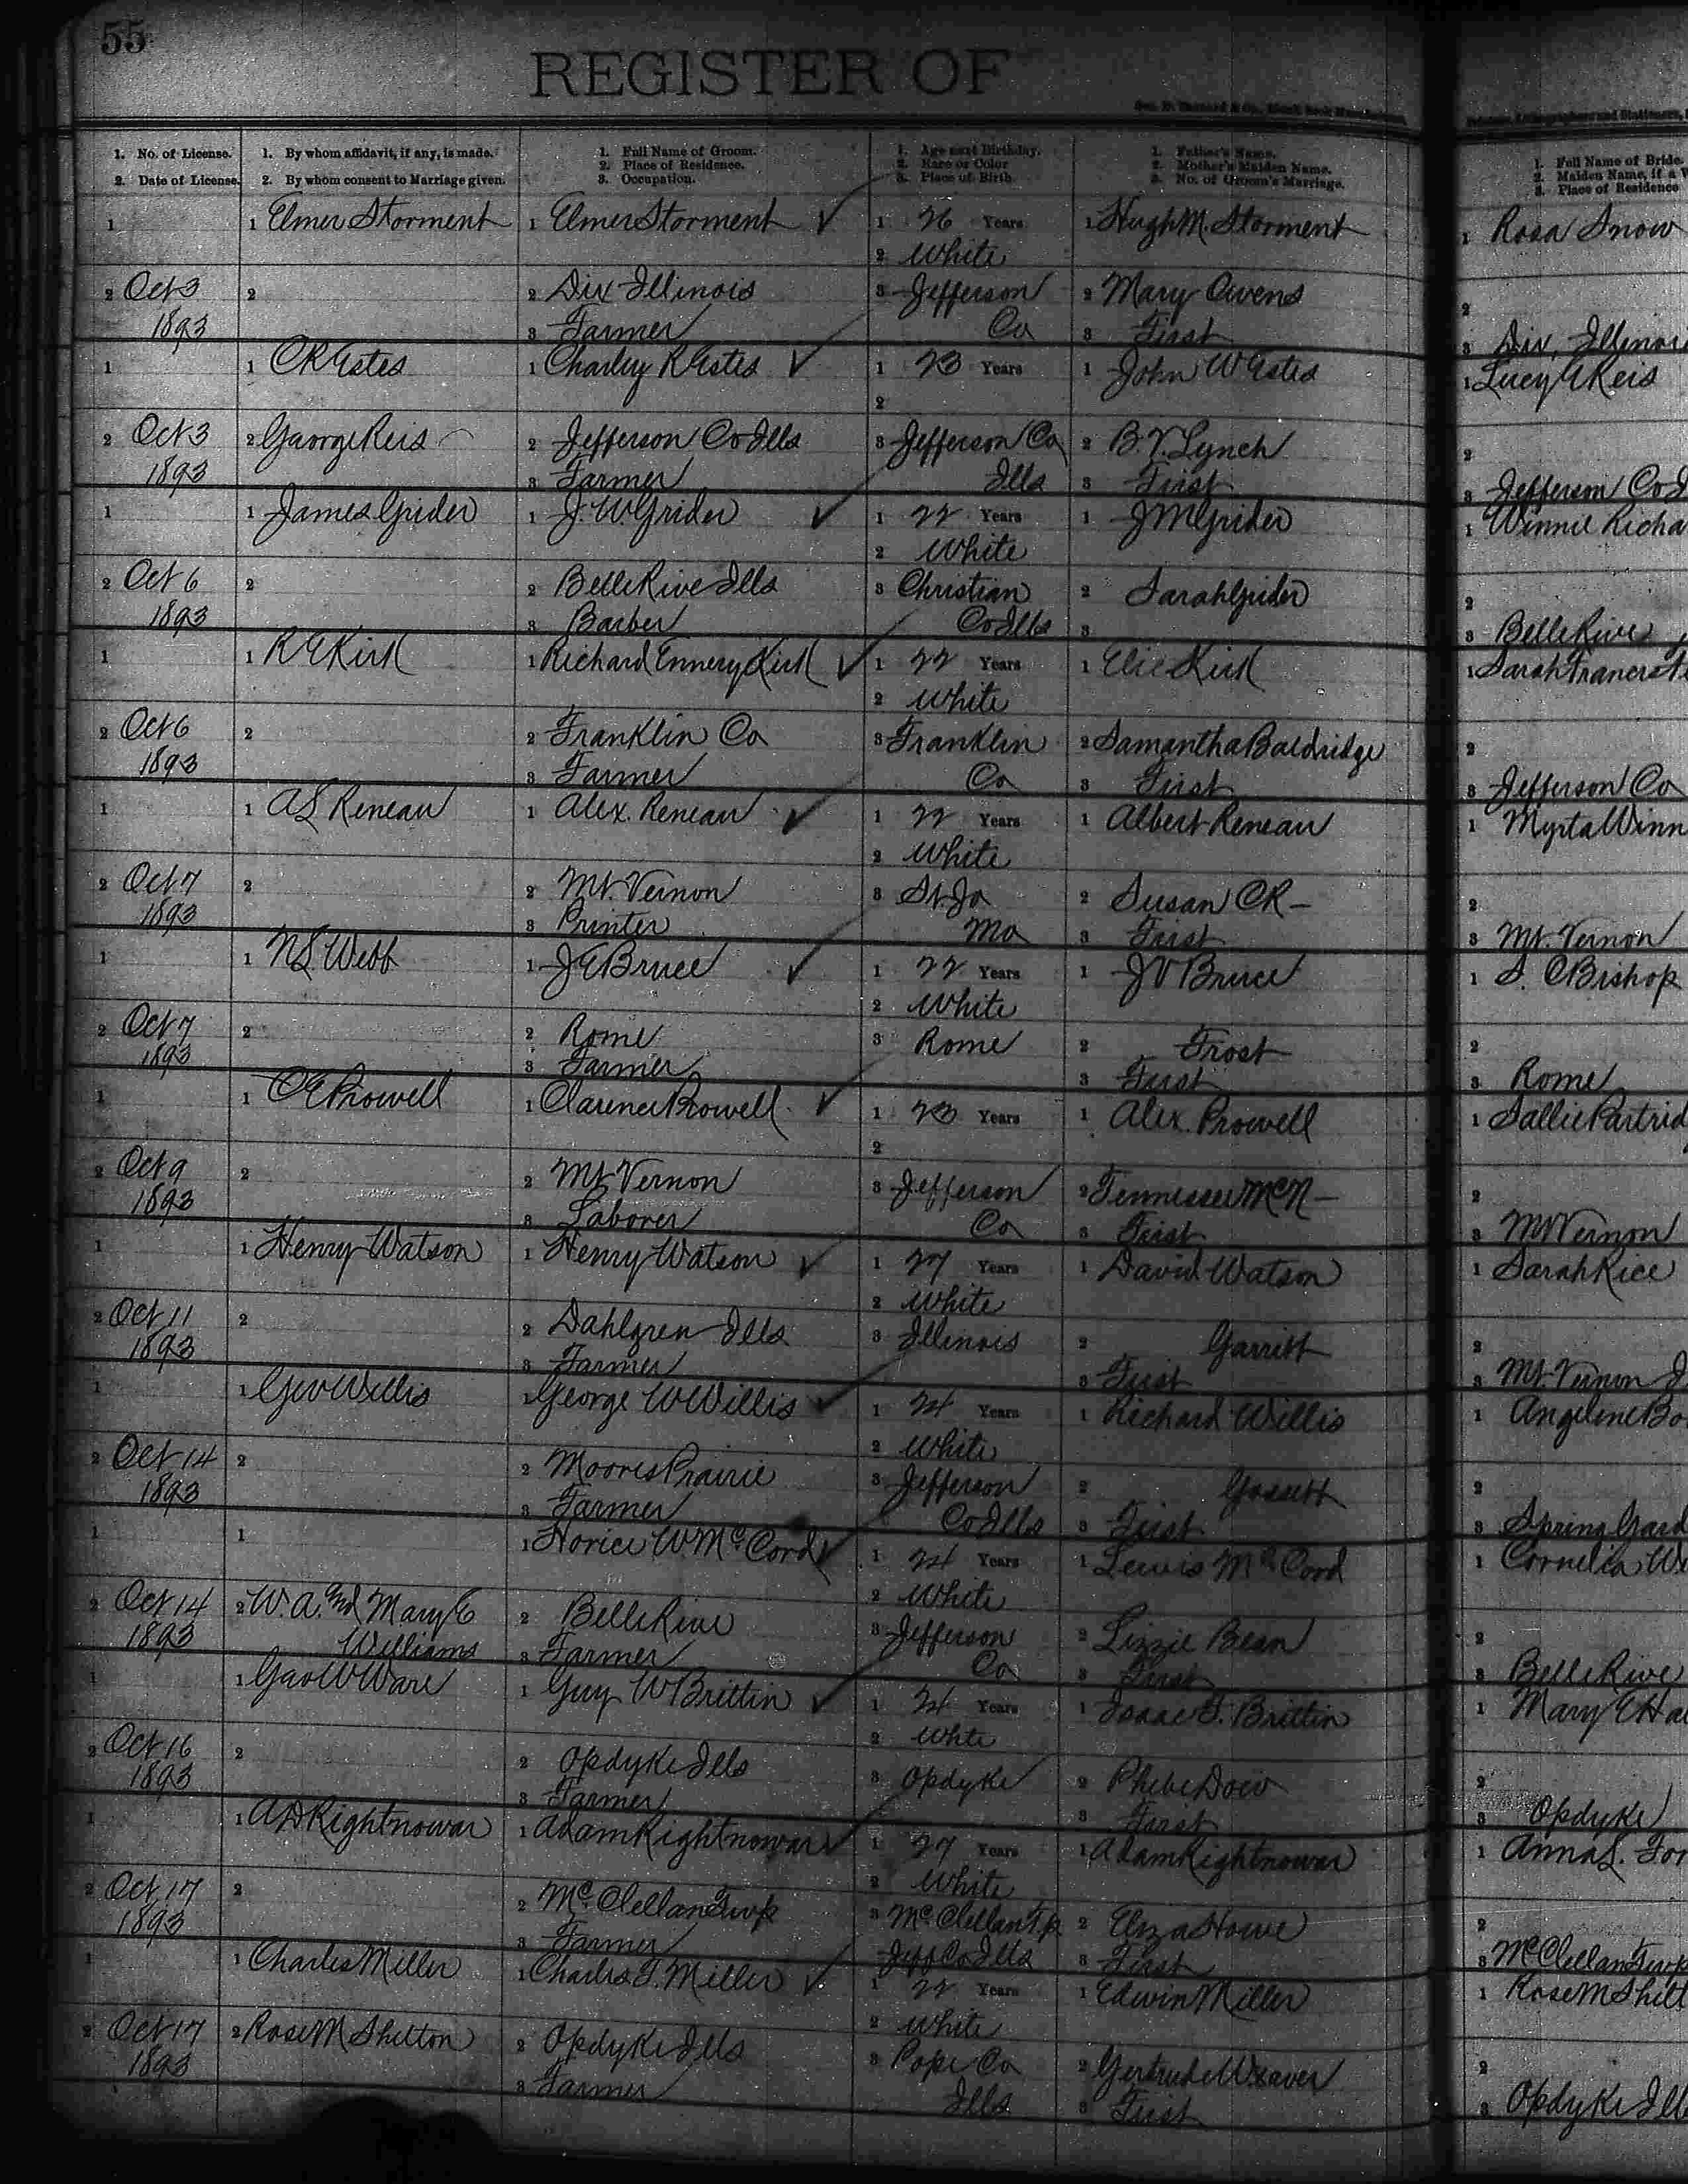 55
REGISTER OF
1. No. of License. 1. By whom affidavit, if any, is made. 1. Full Name of Groom. 1. Age next Birthday. 1. Father's Name. 1. Full Name of Bride.
2. Date of License. 2. By whom consent to Marriage given. 2. Place of Residence. 2. Race or Color 2. Mother's Maiden Name. 2. Maiden Name, if a W
3. Occupation. 3. Place of Birth 3. No. of Groom's Marriage. 3. Place of Residence
1 1 Elmer Storment 1 Elmer Storment ✓ 1 26 Years 1 Hugh M. Storment 1 Rosa Snow
2 White
2 Oct 3 2 2 Dix Illinois 3 Jefferson 2 Mary Owens 2
1893 3 Farmer Co 3 First 3 Dix, Illinois
1 1 C R Estes 1 Charley R Estes ✓ 1 23 Years 1 John W Estes 1 Lucy E Reis
2
2 Oct 3 2 George Reis 2 Jefferson Co Ills 3 Jefferson Co 2 B. V. Lynch 2
1893 3 Farmer Ills 3 First 3 Jefferson Co I
1 1 James Grider 1 J. W. Grider ✓ 1 22 Years 1 J M Grider 1 Winnie Richa
2 White
2 Oct 6 2 2 Belle Rive Ills 3 Christian 2 Sarah Grider 2
1893 3 Barber Co Ills 3 3 Belle Rive
1 1 R E Kirk 1 Richard Ennery Kirk ✓ 1 22 Years 1 Elie Kirk 1 Sarah Frances
2 White
2 Oct 6 2 2 Franklin Co 3 Franklin 2 Samantha Baldridge 2
1893 3 Farmer Co 3 First 3 Jefferson Co
1 1 A S Reneau 1 Alex. Reneau ✓ 1 22 Years 1 Albert Reneau 1 Myrta Winn
2 White
2 Oct 7 2 2 Mt. Vernon 3 St. Jo 2 Susan C R — 2
1893 3 Printer Mo 3 First 3 Mt. Vernon
1 1 N S. Webb 1 J E Bruce ✓ 1 22 Years 1 J V Bruce 1 S. C Bishop
2 White
2 Oct 7 2 2 Rome 3 Rome 2 Frost 2
1893 3 Farmer 3 First 3 Rome
1 1 C E Prowell 1 Clarence Prowell ✓ 1 23 Years 1 Alex. Prowell 1 Sallie Partrid
2
2 Oct 9 2 2 Mt Vernon 3 Jefferson 2 Tennessee McN — 2
1893 3 Laborer Co 3 First 3 Mt Vernon
1 1 Henry Watson 1 Henry Watson ✓ 1 27 Years 1 David Watson 1 Sarah Rice
2 White
2 Oct 11 2 2 Dahlgren Ills 3 Illinois 2 Garritt 2
1893 3 Farmer 3 First 3 Mt. Vernon I
1 1 Geo Willis 1 George W Willis ✓ 1 24 Years 1 Richard Willis 1 Angeline Bo
2 White
2 Oct 14 2 2 Moores Prairie 3 Jefferson 2 Gossett 2
1893 3 Farmer Co Ills 3 First 3 Spring Gard
1 1 1 Horice W. McCord ✓ 1 24 Years 1 Lewis McCord 1 Cornelia W
2 White
2 Oct 14 2 W. A. and Mary E 2 Belle Rive 3 Jefferson 2 Lizzie Bean 2
1893 Williams 3 Farmer Co 3 First 3 Belle Rive
1 1 Geo W Ware 1 Guy W Brittin ✓ 1 24 Years 1 Isaac G. Brittin 1 Mary E Ha
2 Whte
2 Oct 16 2 2 Opdyke Ills 3 Opdyke 2 Phebe Dow 2
1893 3 Farmer 3 First 3 Opdyke
1 1 A D Rightnowar 1 Adam Rightnowar ✓ 1 27 Years 1 Adam Rightnowar 1 Anna L. For
2 White
2 Oct 17 2 2 McClellan Twp 3 McClellan T.p 2 Elza Howe 2
1893 3 Farmer Jeff Co Ills 3 First 3 McClellan Twp
1 1 Charles Miller 1 Charles T. Miller ✓ 1 22 Years 1 Edwin Miller 1 Rose M Shelt
2 White
2 Oct 17 2 Rose M Shelton 2 Opdyke Ills 3 Pope Co 2 Gertrude Weaver 2
1893 3 Farmer Ills 3 First 3 Opdyke Ill